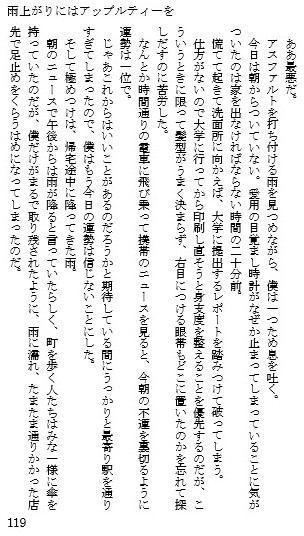 雨上がりにはアップルティーを
ああ最悪だ。
アスファルトを打ち付ける雨を見つめながら、僕は一つため息を吐く。
今日は朝からついていない。愛用の目覚まし時計がなぜか止まってしまっていることに気が
ついたのは家を出なければならない時間の二十分前。
慌てて起きて洗面所に向かえば、大学に提出するレポートを踏みつけて破ってしまう。
仕方がないので大学に行ってから印刷し直そうと身支度を整えることを優先するのだが、こ
ういうときに限って髪型がうまく決まらず、右目につける眼帯もどこに置いたのかを忘れて探
しだすのに苦労した。
なんとか時間通りの電車に飛び乗って携帯のニュースを見ると、今朝の不運を裏切るように
運勢は一位で。
じゃあこれからはいいことがあるのだろうかと期待している間にうっかりと最寄り駅を通り
すぎてしまったので、僕はもう今日の運勢は信じないことにした。
そして極めつけは、帰宅途中に降ってきた雨。
朝のニュースで午後からは雨が降ると言っていたらしく、町を歩く人たちはみな一様に傘を
持っていたのだが、僕だけがまるで取り残されたように、雨に濡れ、たまたま通りかかった店
先で足止めをくらうはめになってしまったのだ。
119